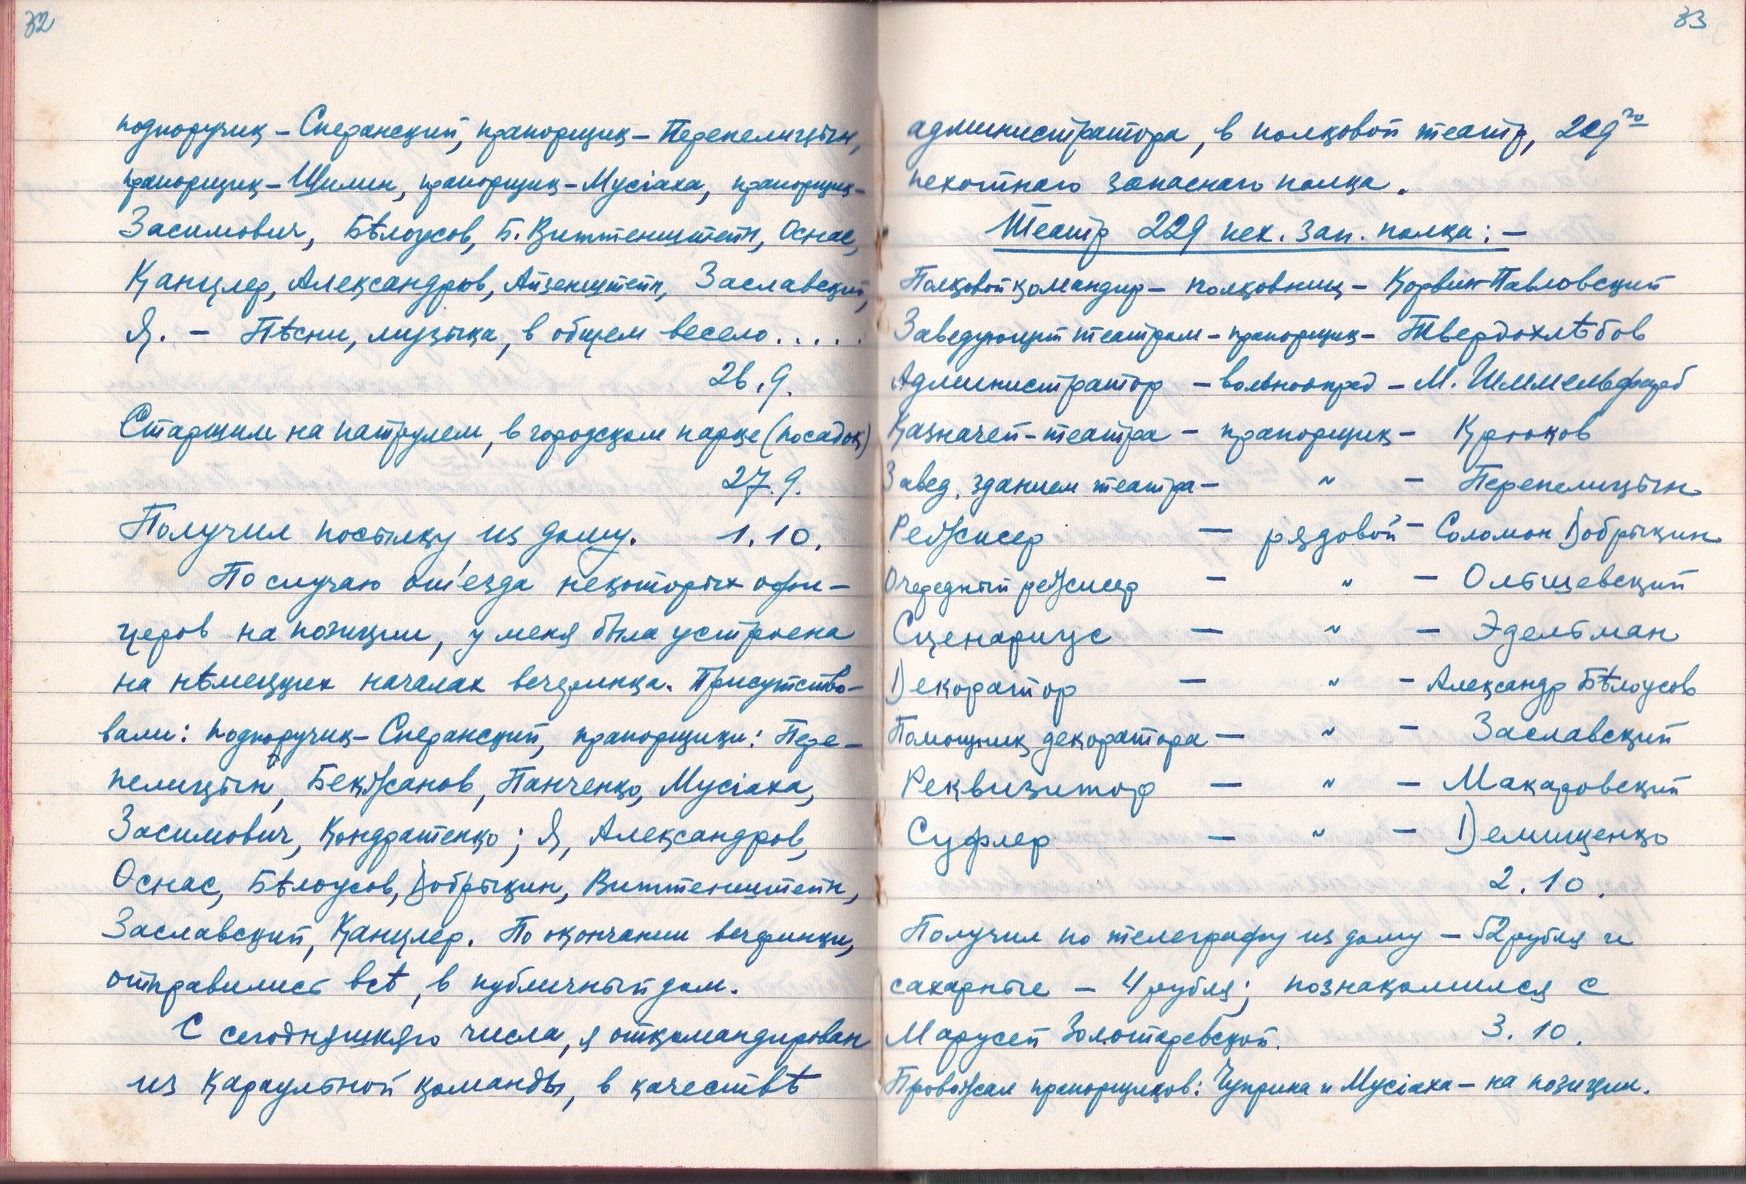 32
подпоручик – Сперанский, прапорщик – Перепелицын,
прапорщик – Шилин, прапорщик – Мусiаха, прапорщик –
Засимович, Бѣлоусов, Б. Виттенштейн, Оснас,
Канцлер, Александров, Айзенштейн, Заславский,
Я. – Пѣсни, музыка, в общем весело.....
26.9.
Старшим на патрулем, в городском парке (посадок)
27.9.
Получил посылку из дому. 1.10.
По случаю от'езда некоторых офи-
церов на позиции, у меня была устроена
на нѣмецких началах вечеринка. Присутство-
вали: подпоручик – Сперанский, прапорщики: Пере-
пелицын, Бекжанов, Панченко, Мусiаха,
Засимович, Кондратенко; Я, Александров,
Оснас, Бѣлоусов, Добрыкин, Виттенштейн,
Заславский, Канцлер. По окончании вечеринки,
отправились всѣ, в публичный дом.
С сегодняшняго числа, я откомандирован
из караульной команды, в качествѣ
33
администратора, в полковой театр, 229го
пехотнаго запаснаго полка.
Театр 229 пех. зап. полка: –
Полковой командир – полковник – Корвин-Павловский
Заведующий театром – прапорщик – Твердохлѣбов
Администратор – вольноопред – М. Шиммельфарб
Казначей – театра – прапорщик – Крюков
Завед. зданием театра – " – Перепелицын
Режисер – рядовой – Соломон Добрыкин
Очередный режисер – " – Ольшевский
Сценариус – " – Эдельман
Декоратор – " – Александр Бѣлоусов
Помощник декоратора – " – Заславский
Реквизитор – " – Макаровский
Суфлер – " – Демищенко
2.10.
Получил по телеграфу из дому – 52 рубля и
сахарные – 4 рубля; познакомился с
Марусей Золотаревской. 3.10.
Провожал прапорщиков: Чуприна и Мусiаха – на позиции.